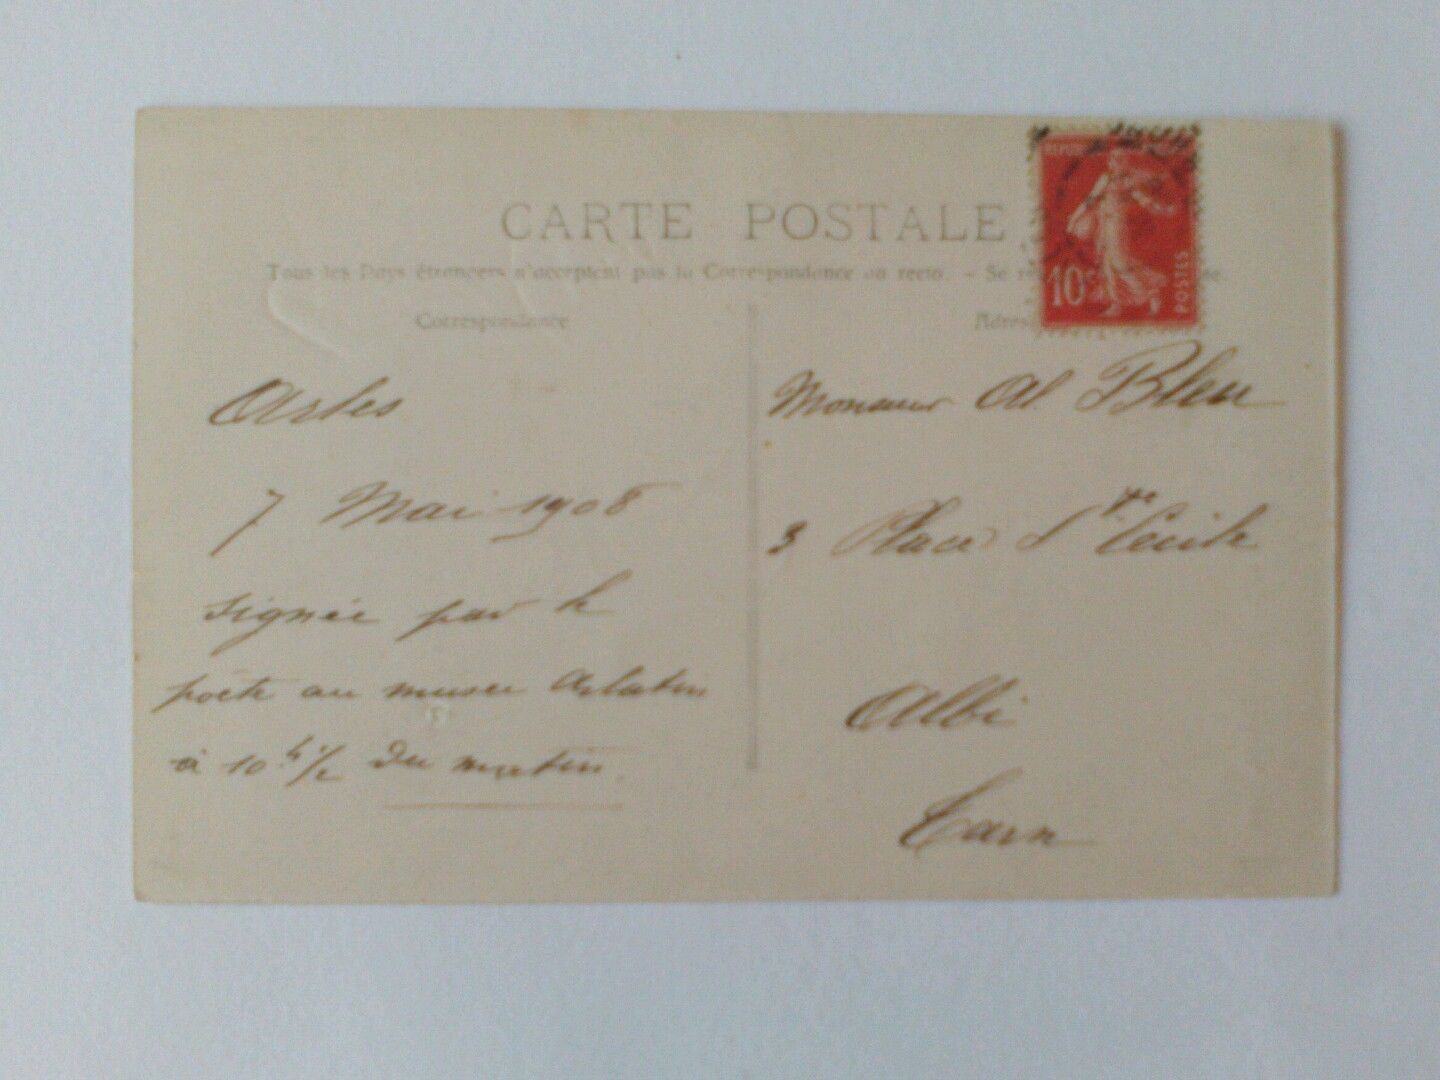 CARTE POSTALE
Tous les Pays étrangers n'acceptent pas la Correspondance au recto. - Se
Correspondance
Arles
7 Mai 1908
signée par le
poète au musée Arlaten
à 10 h 1/2 du matin.
Adres
Monsieur Al. Bleu
3 Place Ste Cécile
Albi
Tarn
10c
POSTES